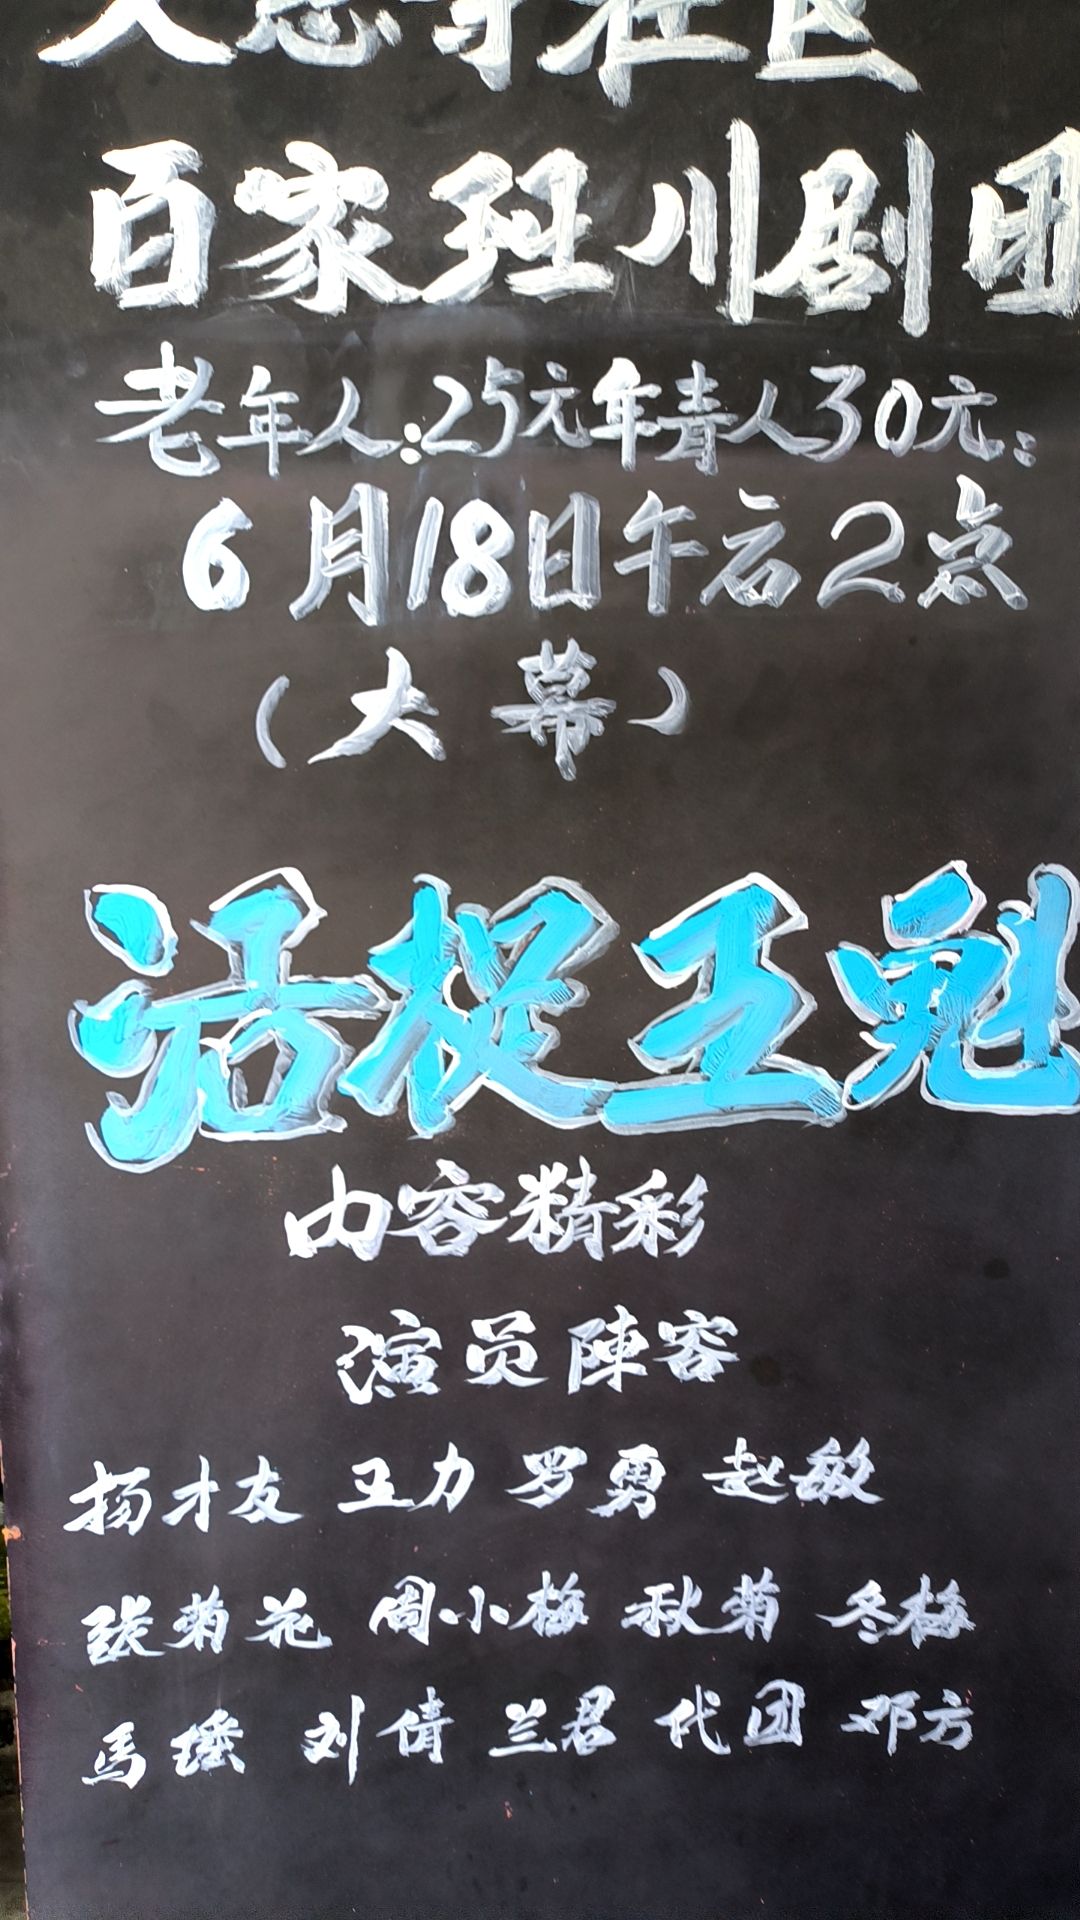 大慈寺社区
百家班川剧团
老年人:25元年青人30元:
6月18日午后2点
(大幕)
活捉王魁
内容精彩
演员陣容
杨才友 王力 罗勇 赵敏
张菊花 周小梅 秋菊 冬梅
馬 刘倩 兰君 代团 邓方